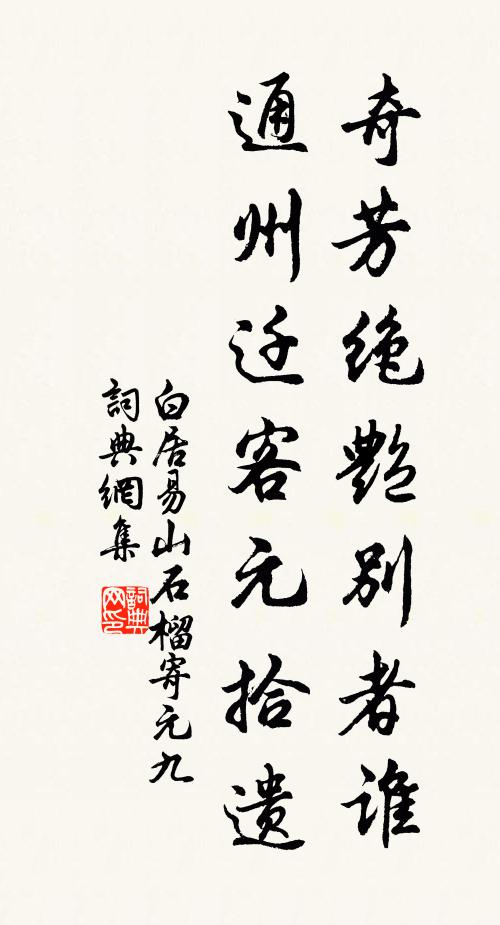 奇芳绝艷别者谁
通州迁客元拾遗
白居易山石榴寄元九
詞典網集
詞典
网印